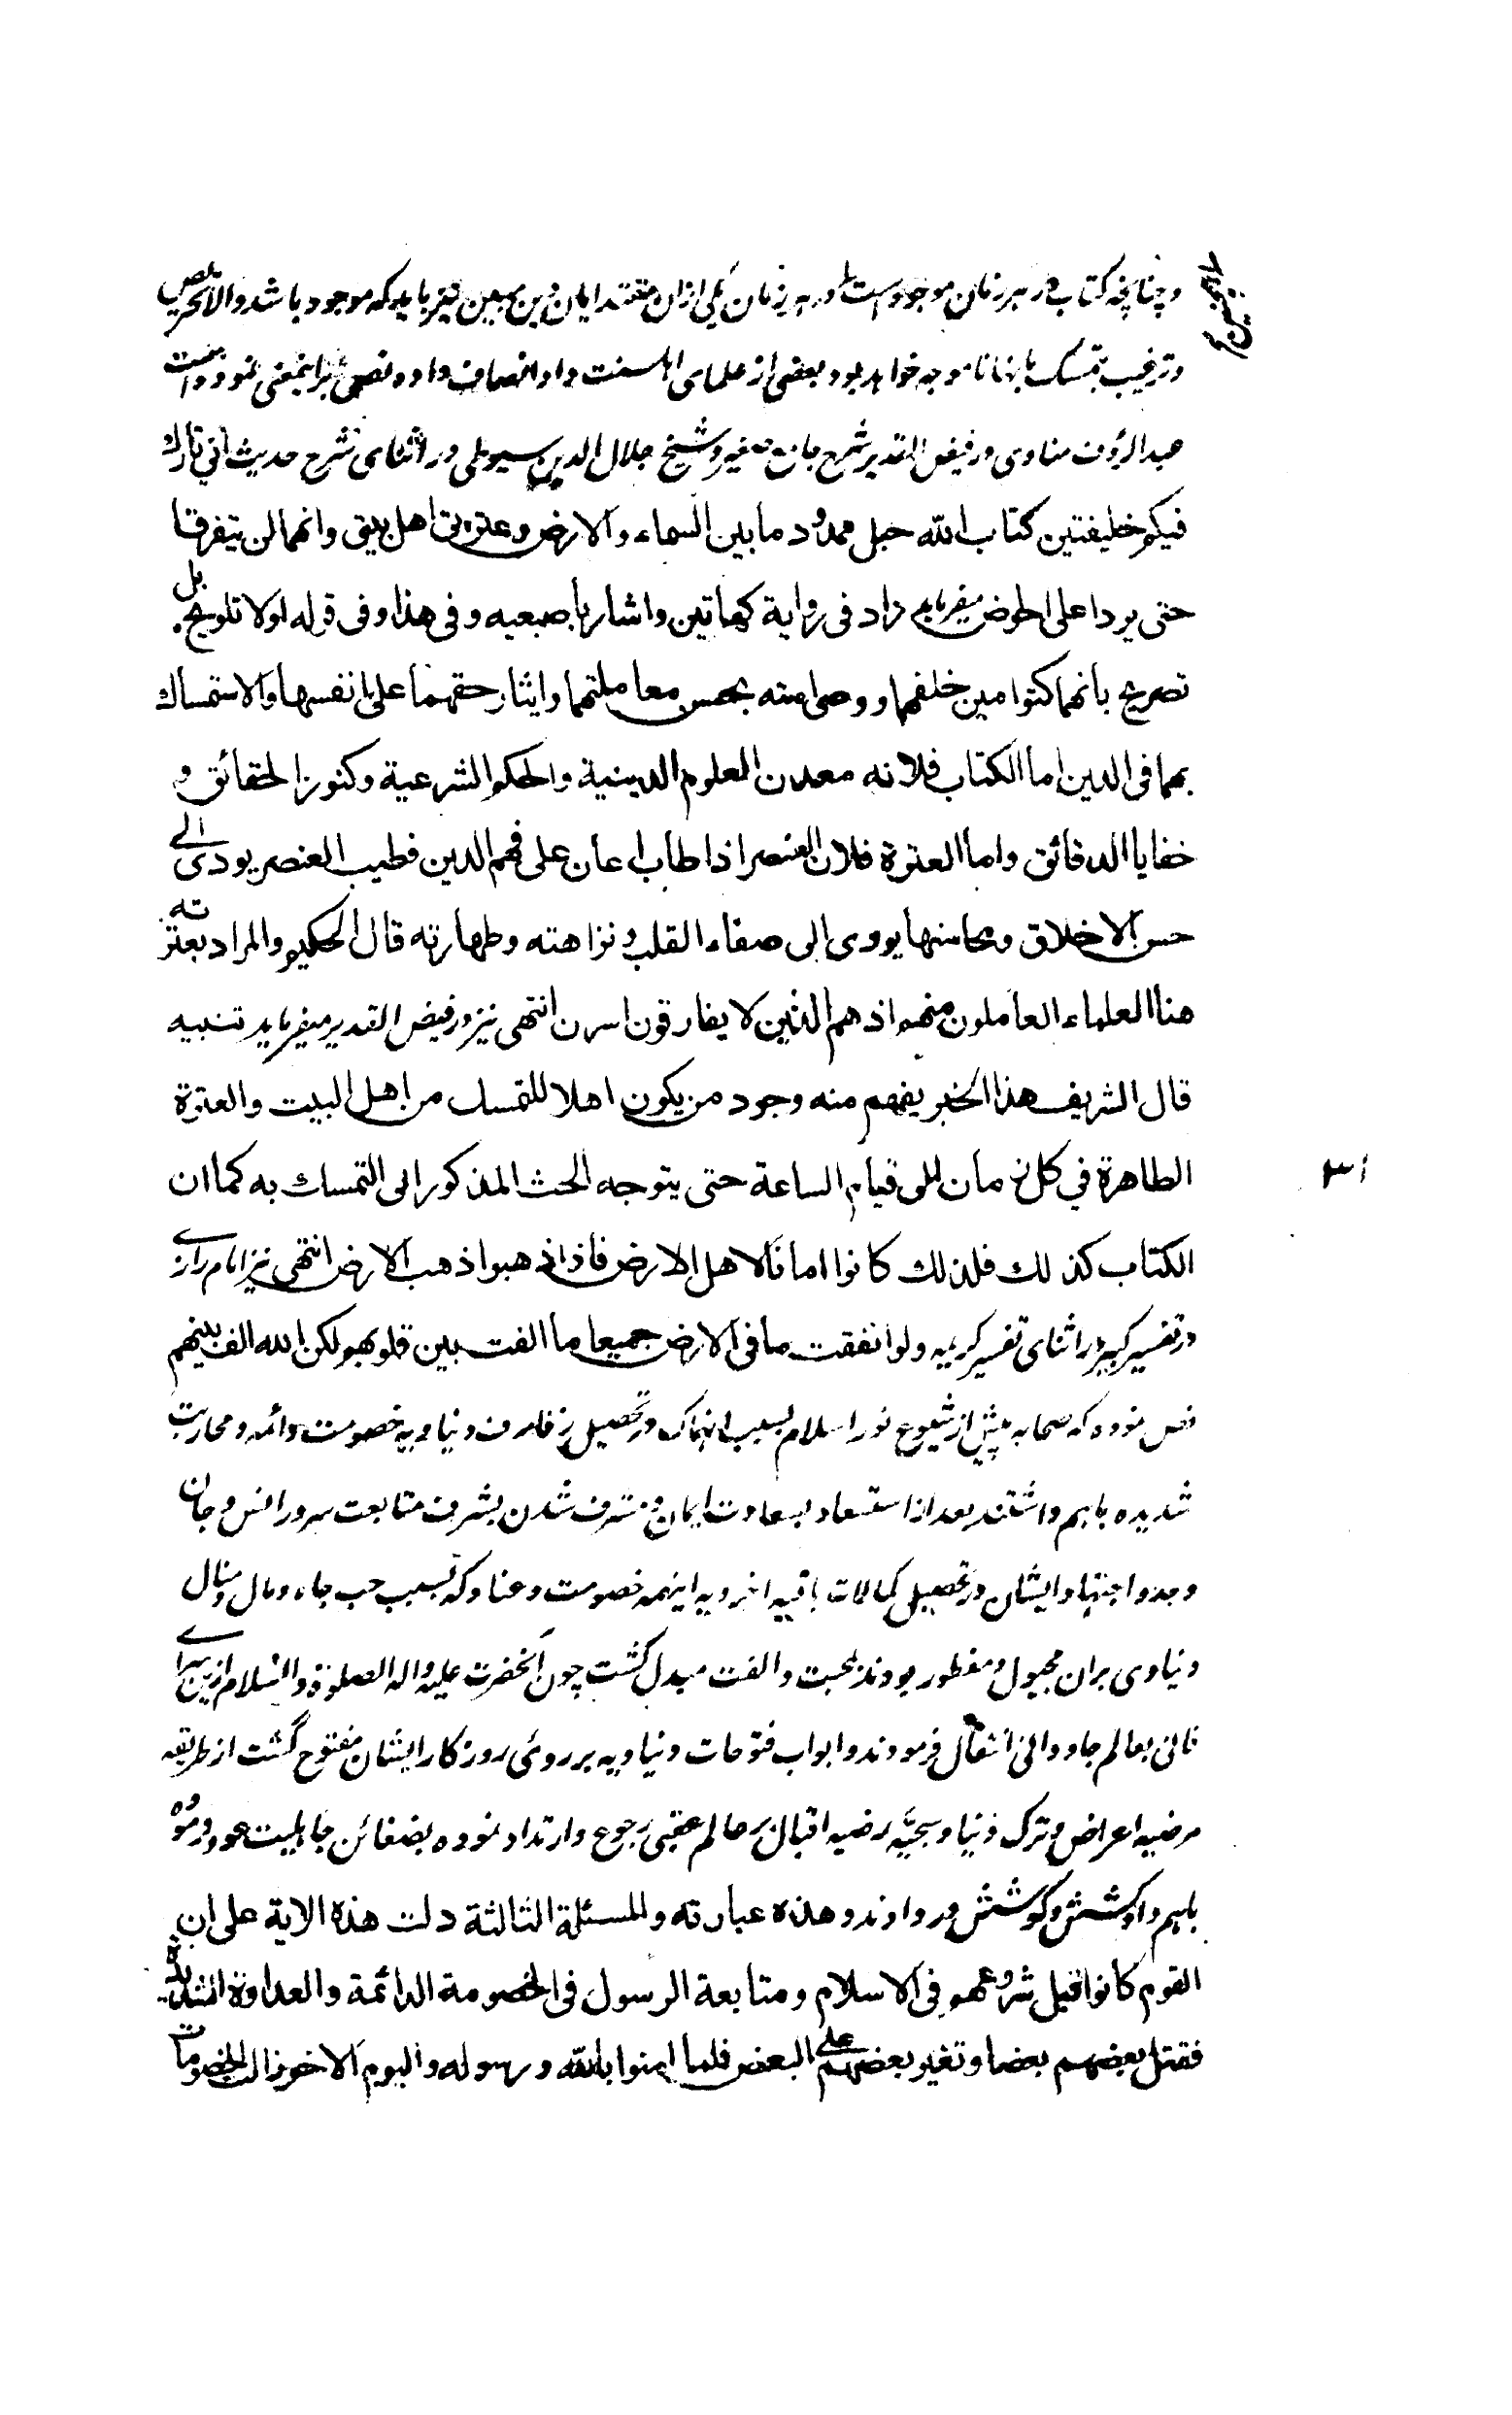 و چنانچه کتاب در هر زمان موجود است در هر زمان یکی ازان مقتدایان دین مبین نیز باید که موجود باشد والا تحریص
و ترغیب بتمسک باینها نا موجه خواهد بود و بعضی از علمای اهلسنت داد انصاف داده نص برینمعنی نموده
عبد الرؤف مناوی در فیض القدیر شرح جامع صغیر شیخ جلال الدین سیوطی در اثنای شرح حدیث انی تارک
فیکم خلیفتین کتاب الله حبل ممدود ما بین السماء والارض وعترتی اهل بیتی وانهما لن یتفرقا
حتی یردا علی الحوض میفرماید زاد فی روایة کهاتین واشار باصبعیه وفی هذا وفی قوله اولا تلویح بل
تصریح بانهما کتوامین خلفهما ووصی امته بحسن معاملتهما وایثار حقهما علی انفسها والاستمساك
بهما فی الدین اما الکتاب فلانه معدن العلوم الدینیة والحکم الشرعیة وکنوز الحقائق و
خفایا الدقائق واما العترة فلان العنصر اذا طاب اعان علی فهم الدین فطیب العنصر یودی الی
حسن الاخلاق ومحاسنها یودی الی صفاء القلب ونزاهته وطهارته قال الحکیم والمراد بعترته
هنا العلماء العاملون منهم اذ هم الذین لا یفارقون القران انتهی نیز در فیض القدیر میفرماید تنبیه
قال الشریف هذا الخبر یفهم منه وجود من یکون اهلا للتمسك من اهل البیت والعترة
الطاهرة فی کل زمان الی قیام الساعة حتی یتوجه الحث المذکور الی التمسك به کما ان
الکتاب کذلك فلذلك کانوا امانا لاهل الارض فاذا ذهبوا ذهب الارض انتهی نیز امام رازی
در تفسیر کبیر در اثنای تفسیر کریمه ولو انفقت ما فی الارض جمیعا ما الفت بین قلوبهم ولکن الله الف بینهم
نص نموده که صحابه پیش از شیوع نور اسلام بسبب انهماک در تحصیل زخارف دنیاویه خصومت دائمه و محاربت
شدیده باهم داشتند بعد از استسعاد بسعادت ایمان و مشرف شدن بشرف متابعت سرور انس و جان
و جد و اجتهاد ایشان در تحصیل کمالات باقیه اخرویه اینهمه خصومت و عناد که بسبب حب جاه و مال و منال
دنیاوی بران مجبول و مفطور بودند بمحبت و الفت مبدل گشت چون آنحضرت علیه واله الصلوة والسلام ازین سرای
فانی بعالم جاودانی انتقال فرمودند و ابواب فتوحات دنیاویه بر روی روزگار ایشان مفتوح گشت از طریقه
مرضیه اعراض و ترک دنیا و سجیه رضیه اقبال بر عالم عقبی رجوع و ارتداد نموده بضغائن جاهلیت عود نموده
باهم داد کشش و کوشش در دادند و هذه عبارته والمسئلة الثالثة دلت هذه الایة علی ان
القوم کانوا قبل شروعهم فی الاسلام ومتابعة الرسول فی الخصومة الدائمة والعداوة الشدیدة
فقتل بعضهم بعضا وتغیر بعضهم علی البعض فلما امنوا بالله ورسوله والیوم الاخر زالت الخصومات
۳۱